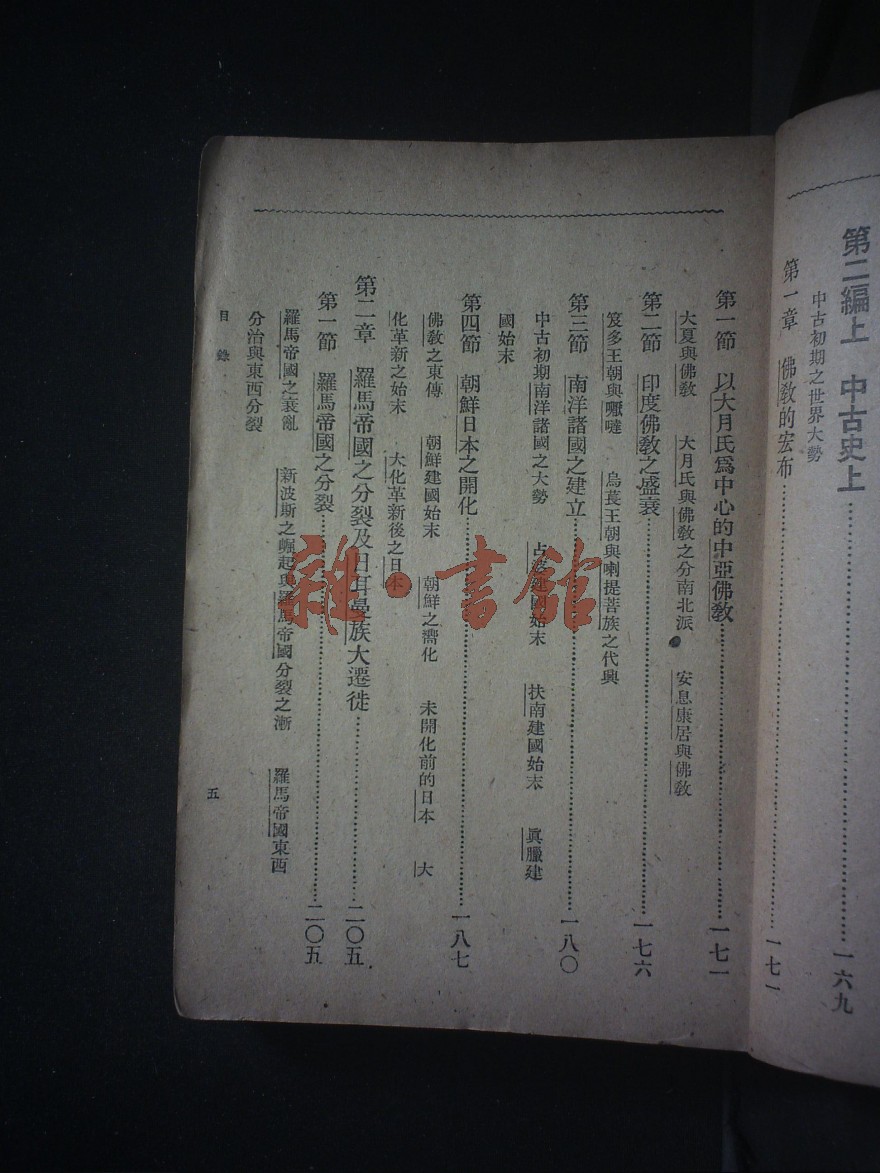 第二編上　中古史上……一六九
中古初期之世界大勢
第一章　佛敎的宏布……一七一
第一節　以大月氏爲中心的中亞佛敎……一七一
大夏與佛敎　大月氏與佛敎之分南北派　安息康居與佛敎
第二節　印度佛敎之盛衰……一七六
笈多王朝與嚈噠　烏萇王朝與喇提菩族之代興
第三節　南洋諸國之建立……一八〇
中古初期南洋諸國之大勢　占婆建國始末　扶南建國始末　眞臘建
國始末
第四節　朝鮮日本之開化……一八七
佛敎之東傳　朝鮮建國始末　朝鮮之嚮化　未開化前的日本　大
化革新之始末　大化革新後之日本
第二章　羅馬帝國之分裂及日耳曼族大遷徙……二〇五
第一節　羅馬帝國之分裂……二〇五
羅馬帝國之衰亂　新波斯之崛起與羅馬帝國分裂之漸　羅馬帝國東西
分治與東西分裂
目錄
五
雜·書館